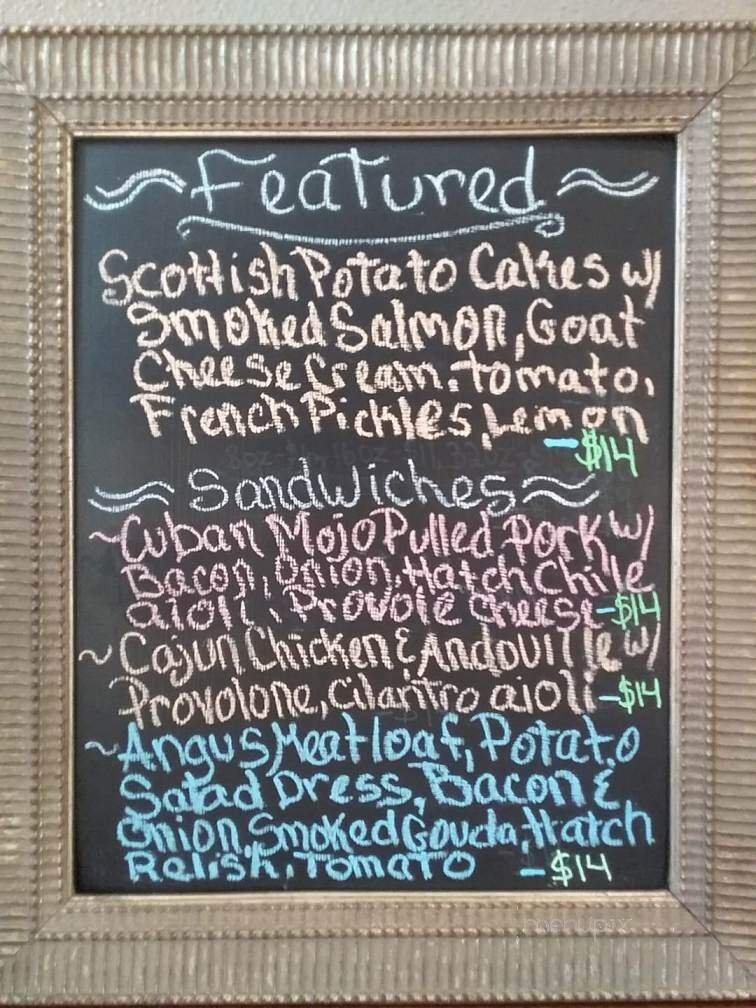 ~Featured~
Scottish Potato Cakes w/
Smoked Salmon, Goat
Cheese Cream, tomato,
French Pickles, Lemon
-$14
~Sandwiches~
~Cuban Mojo Pulled Pork w/
Bacon, Onion, Hatch Chile
aioli, Provole cheese -$14
~Cajun Chicken & Andouille w/
Provolone, Cilantro aioli -$14
~Angus Meatloaf, Potato
Salad Dress, Bacon &
Onion, Smoked Gouda, Hatch
Relish, Tomato -$14
menupix